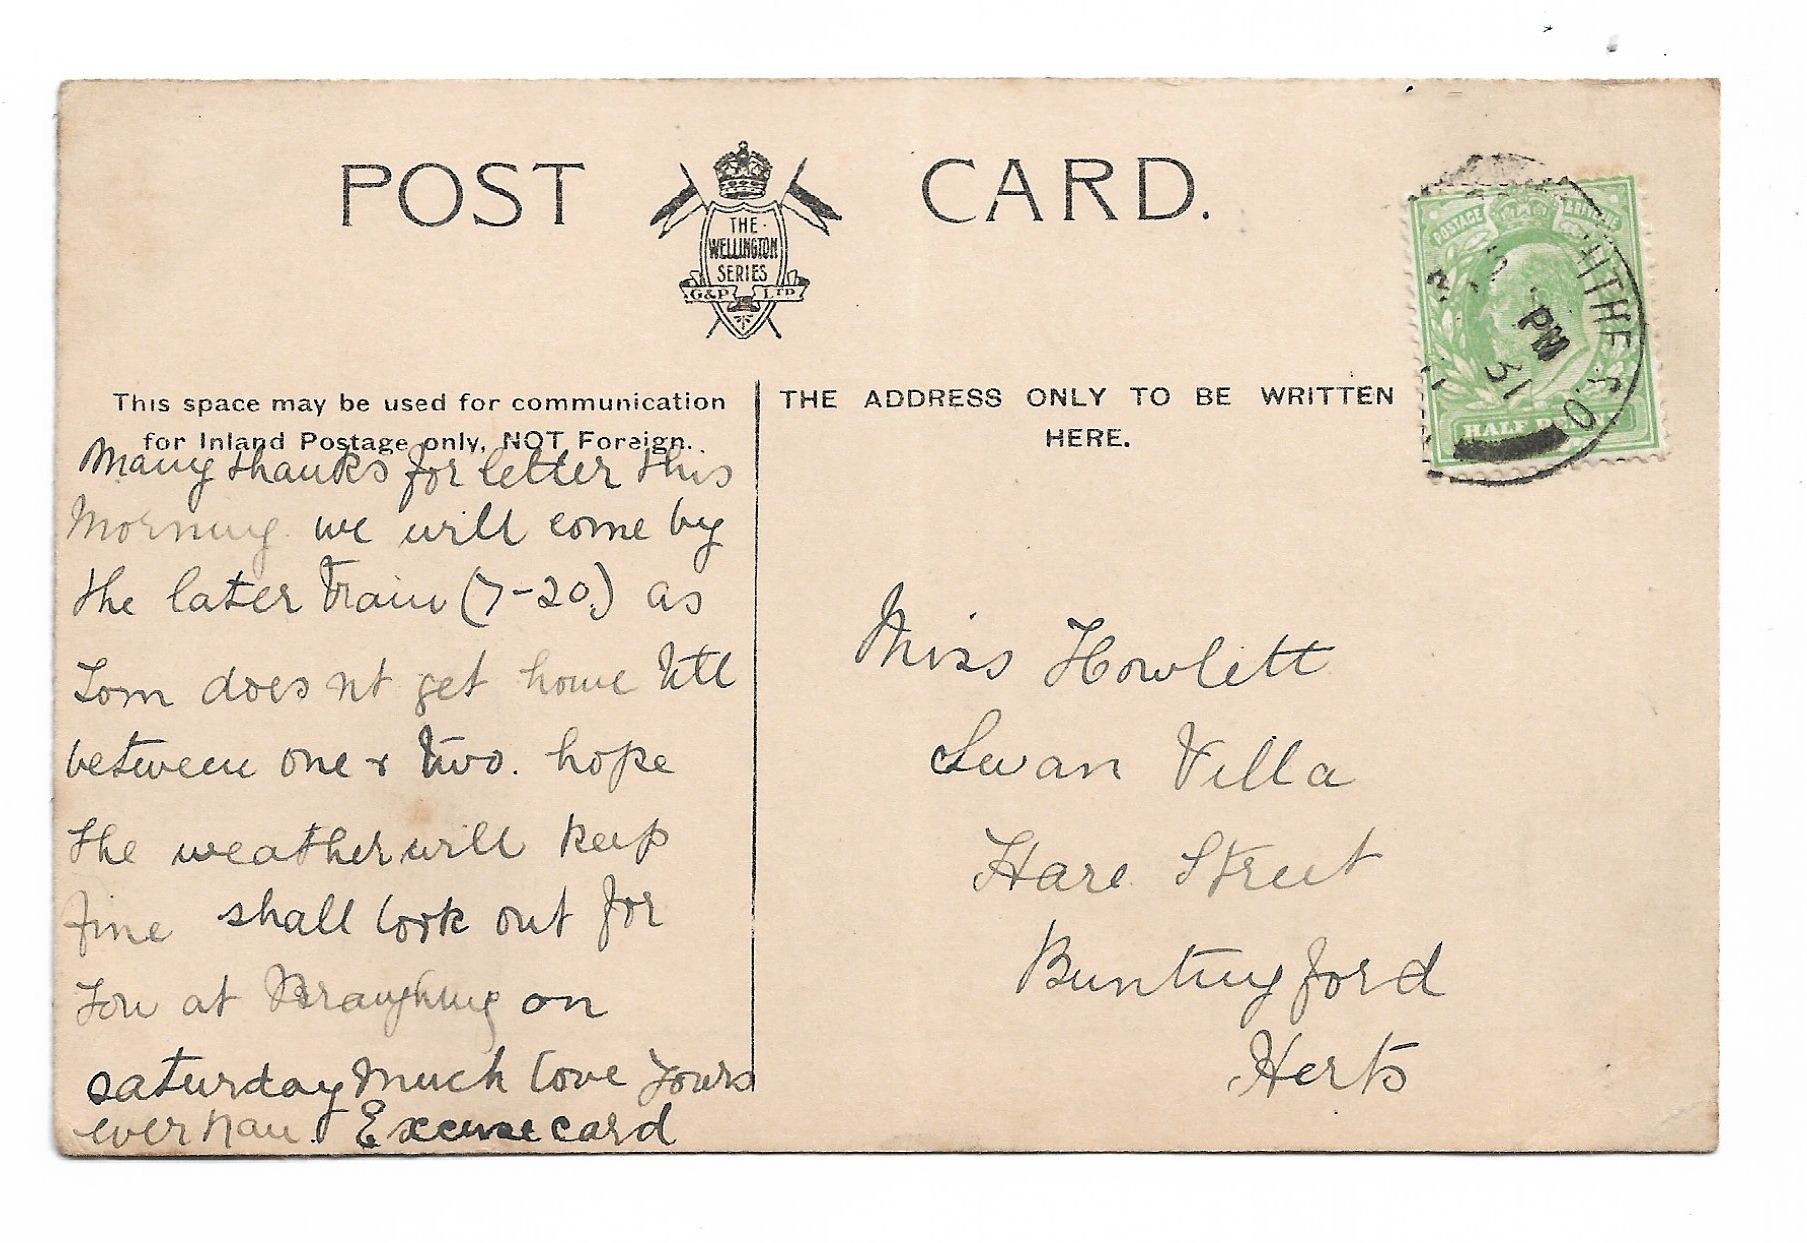 POST CARD.
THE
WELLINGTON
SERIES
G&P LTD
POSTAGE & REVENUE
ITHE
PM
31
HALF
This space may be used for communication
for Inland Postage only, NOT Foreign.
THE ADDRESS ONLY TO BE WRITTEN
HERE.
Many thanks for letter this
Morning we will come by
the later train (7-20.) as
Tom does nt get home till
between one & two. hope
the weather will keep
fine shall look out for
You at Braughing on
saturday Much love Yours
ever Nan. Excuse card
Miss Howlett
Swan Villa
Hare Street
Buntingford
Herts